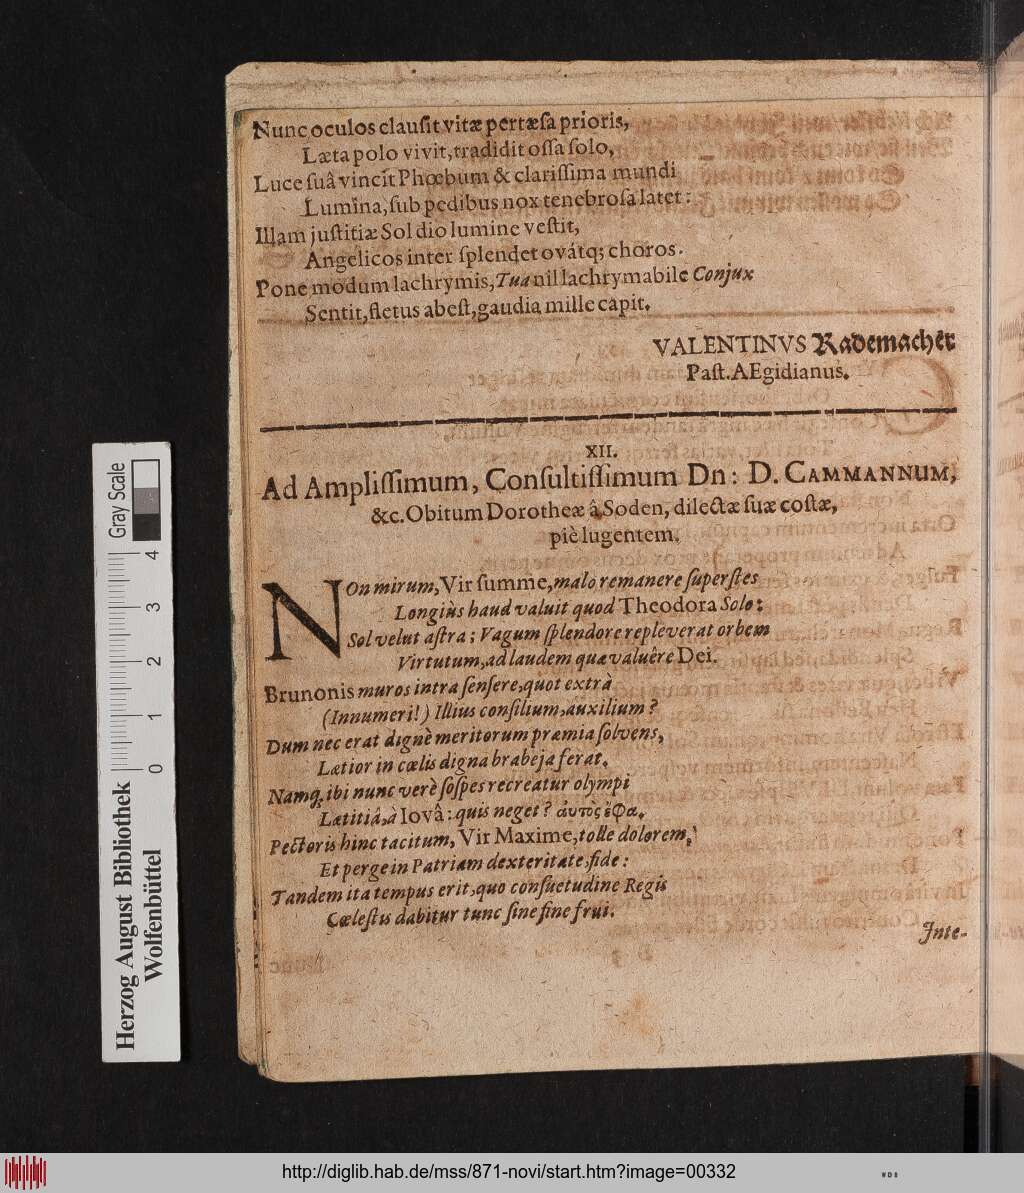 Nunc oculos clauſit vitæ pertæſa prioris,
Læta polo vivit, tradidit oſſa ſolo,
Luce ſuâ vincit Phœbum & clariſſima mundi
Lumina, ſub pedibus nox tenebroſa latet:
Illam juſtitiæ Sol dio lumine veſtit,
Angelicos inter ſplendet ovátq; choros.
Pone modum lachrymis, Tua nil lachrymabile Conjux
Sentit, fletus abeſt, gaudia mille capit.
VALENTINVS Rademacher
Paſt. AEgidianus.
XII.
Ad Ampliſſimum, Conſultiſſimum Dn: D. CAMMANNUM,
&c. Obitum Dorotheæ â Soden, dilectæ ſuæ coſtæ,
piè lugentem.
NOn mirum, Vir ſumme, malo remanere ſuperſtes
Longiùs haud valuit quod Theodora Solo:
Sol velut aſtra; Vagum ſplendore repleverat orbem
Virtutum, ad laudem quæ valuêre Dei.
Brunonis muros intra ſenſere, quot extrà
(Innumeri!) Illius conſilium, auxilium?
Dum nec erat dignè meritorum præmia ſolvens,
Lætior in cœlis digna brabeja ferat.
Namq; ibi nunc verè ſoſpes recreatur olympi
Lætitiâ, à Iovâ: quis neget? αὐτὸς ἐφα.
Pectoris hinc tacitum, Vir Maxime, tolle dolorem,
Et perge in Patriam dexteritate, fide:
Tandem ita tempus erit, quo conſuetudine Regis
Cœleſtis dabitur tunc ſine fine frui.
Inte-
Gray Scale
4
3
2
1
0
Herzog August Bibliothek
Wolfenbüttel
http://diglib.hab.de/mss/871-novi/start.htm?image=00332